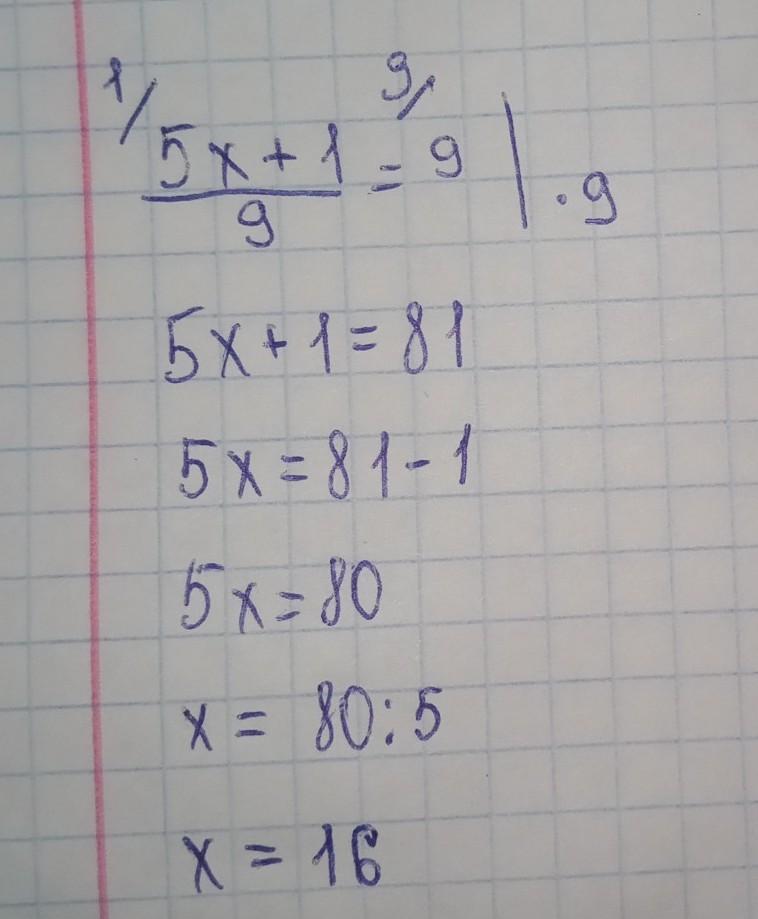 1/ 9/
5x + 1 = 9 | · 9
9
5x + 1 = 81
5x = 81 - 1
5x = 80
x = 80 : 5
x = 16